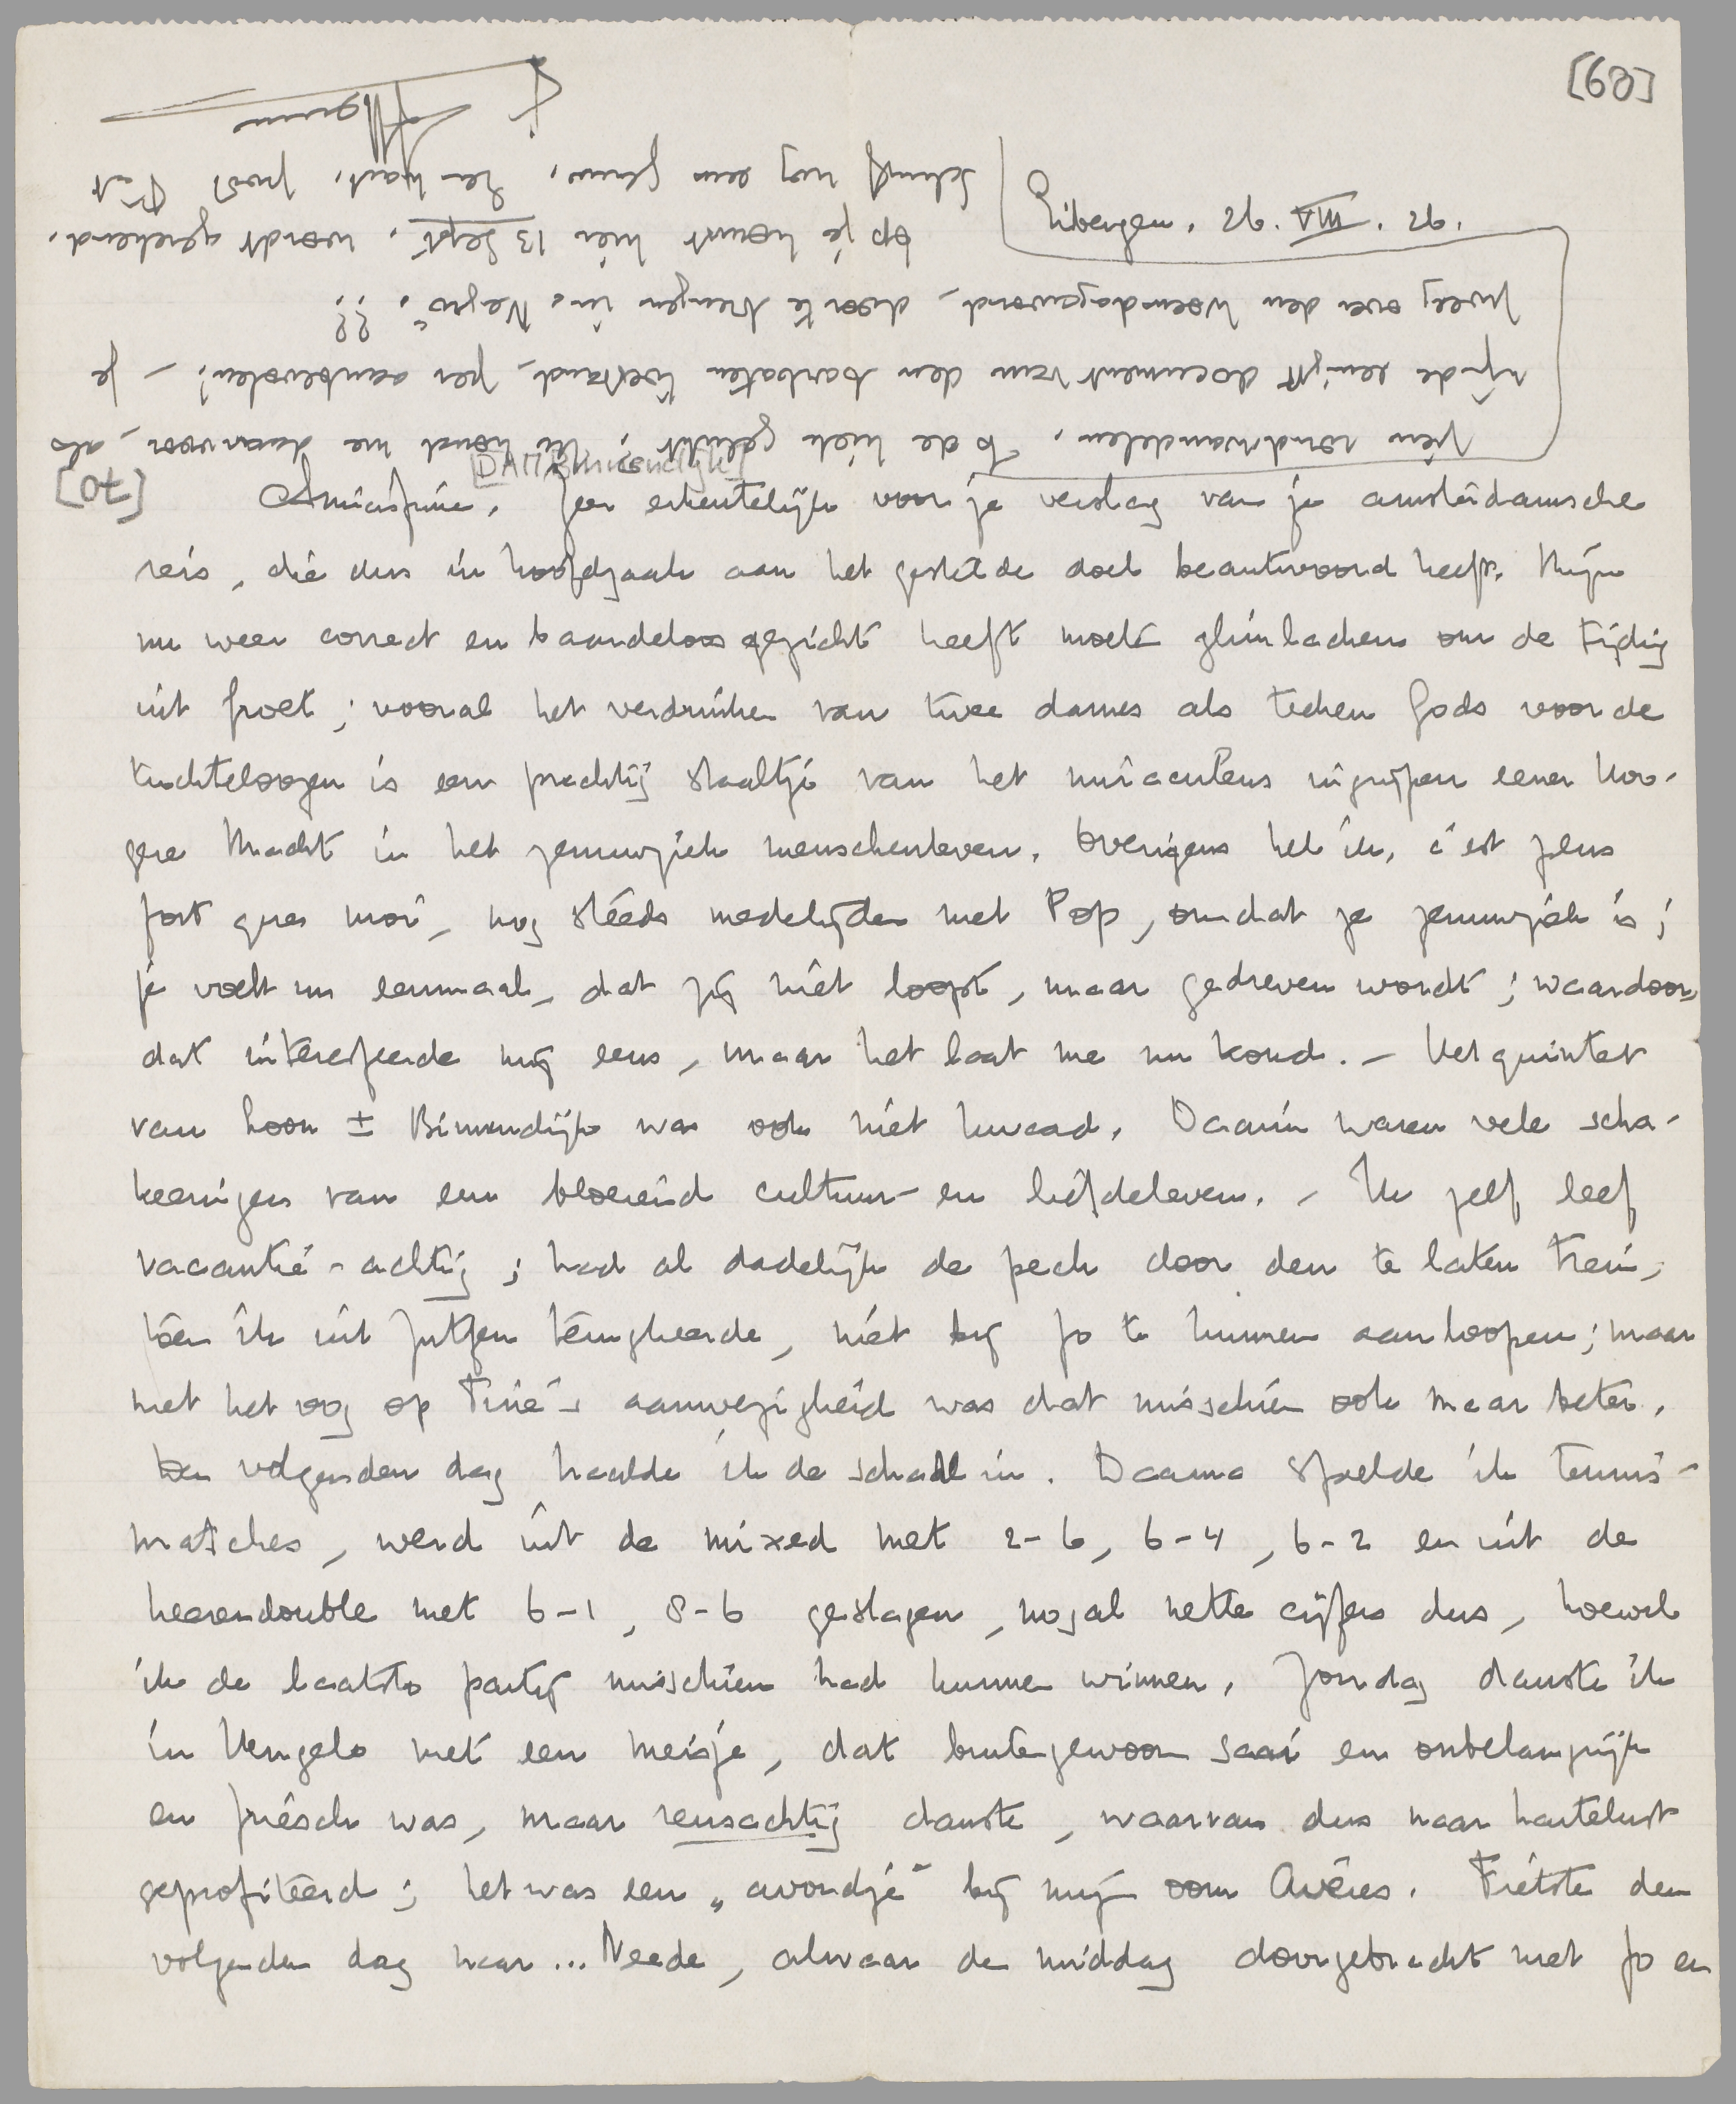 [68]
Eibergen, 26. VIII. 26.
[D.A.M. Binnendijk]
Amicissime, Zeer erkentelijk voor je verslag van je amsterdamsche
reis, die dus in hoofdzaak aan het gestelde doel beantwoord heeft. Mijn
nu weer correct en baardeloos gezicht heeft moeten glimlachen om de tijding
uit Soest; vooral het verdrinken van twee dames als teeken Gods voor de
tuchteloozen is een prachtig staaltje van het miraculeus ingrijpen eener Hoo-
gere Macht in het zenuwziek menschenleven. Overigens heb ik, c'est plus
fort que moi, nog stééds medelijden met Pop, omdat ze zenuwziek is;
je voelt nu eenmaal, dat zij niet loopt, maar gedreven wordt; waardoor,
dat interesseerde mij eens, maar het laat me nu koud. – Het quintet
van Loon ± Binnendijk was ook niet kwaad. Daarin waren vele scha-
keeringen van een bloeiend cultuur- en liefdeleven. – Ik zelf leef
vacantie-achtig; had al dadelijk de pech door den te laten trein,
toen ik uit Zutfen terugkeerde, niet bij Jo te kunnen aanloopen; maar
met het oog op Tine's aanwezigheid was dat misschien ook maar beter.
Den volgenden dag haalde ik de schade in. Daarna speelde ik tennis-
matches, werd uit de mixed met 2-6, 6-4, 6-2 en uit de
heerendouble met 6-1, 8-6 geslagen, nogal nette cijfers dus, hoewel
ik de laatste partij misschien had kunnen winnen. Zondag danste ik
in Hengelo met een meisje, dat buitengewoon saai en onbelangrijk
en friesch was, maar reusachtig danste, waarvan dus naar hartelust
geprofiteerd; het was een „avondje" bij mijn oom Avéres. Fietste den
volgenden dag naar... Neede, alwaar de middag doorgebracht met Jo en
[70]
zien rondwandelen. To de kiek gelukt; ik houd me daarvoor, als
zijnde eenigst document van den barbaten toestand, zeer aanbevolen! – Je
zweeg over den Woensdagavond, door te brengen in „Negro". ??!
op je komst hier 13 Sept. wordt gerekend.
Schrijf nog eens gauw. En hart. groet P.et
t. Menno